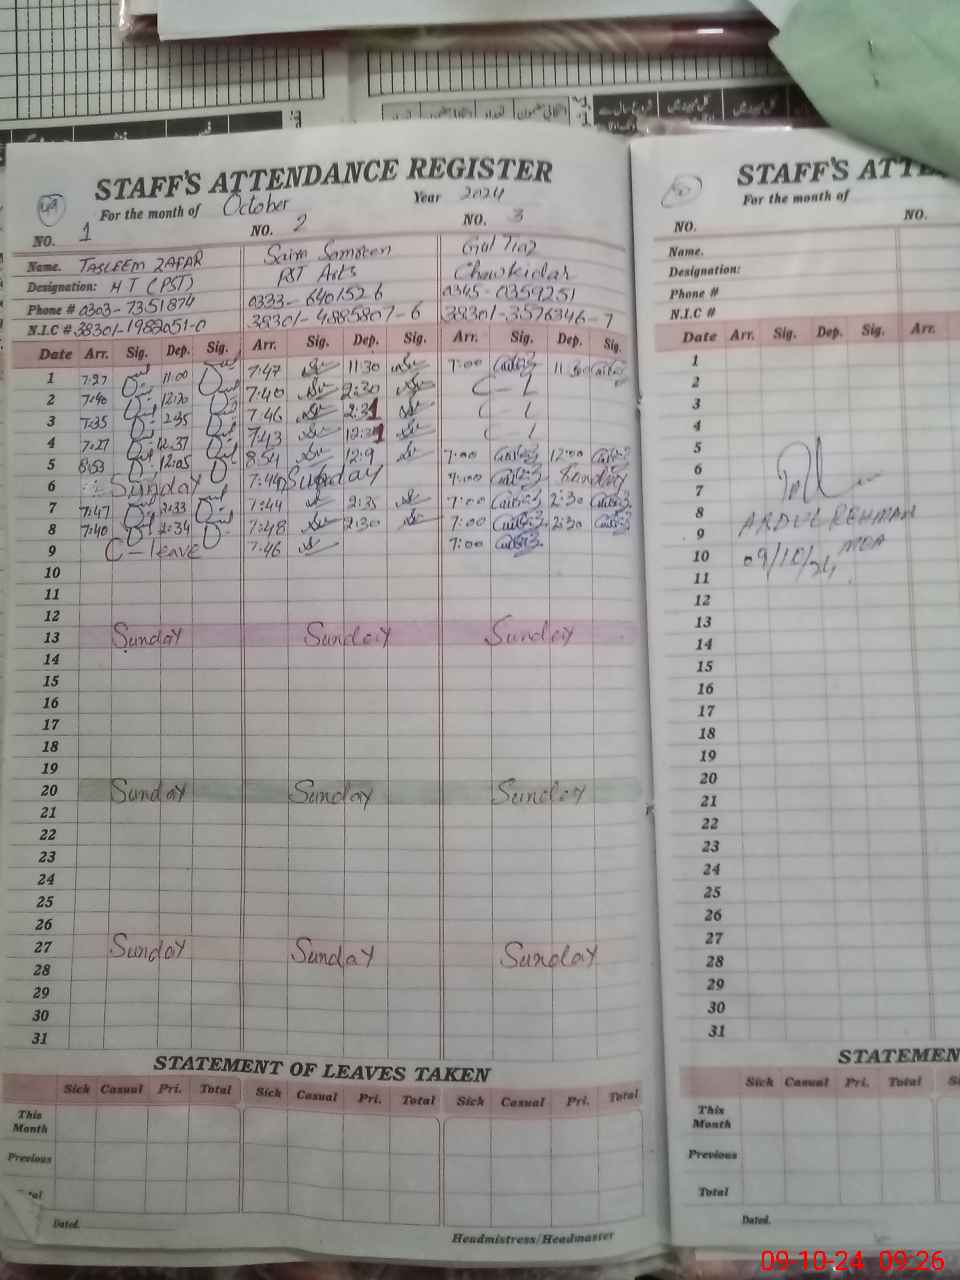 STAFF'S ATTENDANCE REGISTER
49
For the month of October Year 2024
NO. 1 NO. 2 NO. 3
Name. TASLEEM ZAFAR Saim Samreen Gul Tiaz
Designation: H T (PST) PST Arts Chowkidar
Phone # 0303-7351874 0333-6401526 0345-0359251
N.I.C # 38301-1982051-0 38301-4885807-6 38301-3576346-7
Date Arr. Sig. Dep. Sig. Arr. Sig. Dep. Sig. Arr. Sig. Dep. Sig.
1 7:27 11:00 7:47 11:30 7:00 11:30
2 7:40 12:20 7:40 2:30 C-L
3 7:35 2:35 7:46 2:31 C-L
4 7:27 12:37 7:43 12:31 C-L
5 8:53 12:05 8:54 12:9 7:00 12:00
6 Sunday 7:44 Sunday Sunday
7 7:47 2:33 7:44 2:35 7:00 2:30
8 7:40 2:34 7:48 2:30 7:00 2:30
9 C-leave 7:46 7:00
10
11
12
13 Sunday Sunday Sunday
14
15
16
17
18
19
20 Sunday Sunday Sunday
21
22
23
24
25
26
27 Sunday Sunday Sunday
28
29
30
31
STATEMENT OF LEAVES TAKEN
Sick Casual Pri. Total Sick Casual Pri. Total Sick Casual Pri. Total
This Month
Previous
Dated.
Headmistress/Headmaster
STAFF'S ATTE
For the month of
NO. NO.
Name.
Designation:
Phone #
N.I.C #
Date Arr. Sig. Dep. Sig. Arr.
1
2
3
4
5
6
7
8
ABDUL REHMAN
9
MEA
10 09/10/24
11
12
13
14
15
16
17
18
19
20
21
22
23
24
25
26
27
28
29
30
31
STATEMEN
Sick Casual Pri. Total
This Month
Previous
Total
Dated.
09-10-24 09:26